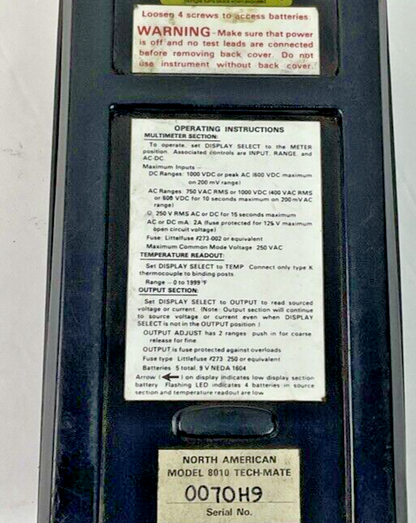 Loosen 4 screws to access batteries.
WARNING - Make sure that power
is off and no test leads are connected
before removing back cover. Do not
use instrument without back cover.
OPERATING INSTRUCTIONS
MULTIMETER SECTION:
To operate, set DISPLAY SELECT to the METER
position. Associated controls are INPUT, RANGE, and
AC-DC.
Maximum Inputs —
DC Ranges: 1000 VDC or peak AC (600 VDC maximum
on 200 mV range)
AC Ranges: 750 VAC RMS or 1000 VDC (400 VAC RMS
or 600 VDC for 10 seconds maximum on 200 mV AC
range)
Ω: 250 V RMS AC or DC for 15 seconds maximum
AC or DC mA: 2A (fuse protected for 125 V maximum
open circuit voltage)
Fuse: Littelfuse #273-002 or equivalent
Maximum Common Mode Voltage 250 VAC
TEMPERATURE READOUT:
Set DISPLAY SELECT to TEMP Connect only type K
thermocouple to binding posts
Range - 0 to 1999 °F
OUTPUT SECTION:
Set DISPLAY SELECT to OUTPUT to read sourced
voltage or current. (Note: Output section will continue
to source voltage or current even when DISPLAY
SELECT is not in the OUTPUT position.)
OUTPUT ADJUST has 2 ranges push in for coarse
release for fine
OUTPUT is fuse protected against overloads
Fuse type Littlefuse #273 250 or equivalent
Batteries 5 total, 9 V NEDA 1604
Arrow (←) on display indicates low display section
battery Flashing LED indicates 4 batteries in source
section and temperature readout are low
NORTH AMERICAN
MODEL 8010 TECH-MATE
0070H9
Serial No.